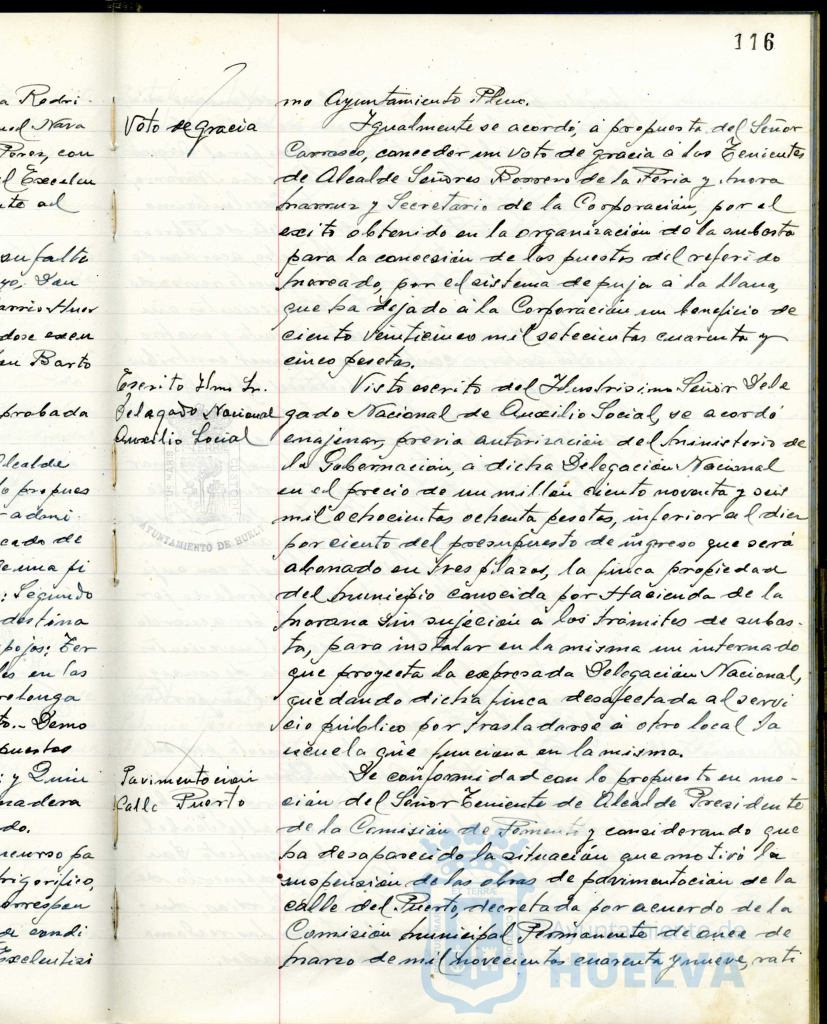 116
a Rodri-
uel Nava
Perez, con
l Excelen
nto al
su falta
yo, Don
arrio Huer
dose exen
an Barto
probada
Alcalde
lo propues
r admi-
cado de
de una fi
: Segundo
destina
pojos; Ter
los en las
to.- Demo
puestos
; y Quin
madera
do.
ncurso pa
rigorifico,
orrespon
de condi
Excelentisi
Voto de gracia
Escrito Ilmo Sr.
Delegado Nacional
Auxilio Social
Pavimentacion
Calle Puerto
mo Ayuntamiento Pleno.
Igualmente se acordó, á propuesta del Señor
Carrasco, conceder un voto de gracia á los Tenientes
de Alcalde Señores Borrero de la Feria y Mora
Narruz y Secretario de la Corporación, por el
exito obtenido en la organización de la subasta
para la concesión de los puestos del referido
Mercado, por el sistema de puja á la llana,
que ha dejado á la Corporación un beneficio de
ciento veinticinco mil setecientas cuarenta y
cinco pesetas.
Visto escrito del Ilustrisimo Señor Dele
gado Nacional de Auxilio Social, se acordó
enajenar, previa autorización del Ministerio de
la Gobernación, á dicha Delegación Nacional
en el precio de un millon ciento noventa y seis
mil ochocientas ochenta pesetas, inferior al diez
por ciento del presupuesto de ingreso que será
abonado en tres plazos, la finca propiedad
del Municipio conocida por Hacienda de la
Morana sin sujeción á los trámites de subas-
ta, para instalar en la misma un internado
que proyecta la expresada Delegación Nacional,
quedando dicha finca desafectada al servi
cio público por trasladarse á otro local la
escuela que funciona en la misma.
De conformidad con lo propuesto en mo-
ción del Señor Teniente de Alcalde Presidente
de la Comisión de Fomento y considerando que
ha desaparecido la situación que motivó la
suspensión de las obras de pavimentación de la
calle del Puerto, decretada por acuerdo de la
Comisión Municipal Permanente de once de
Marzo de mil novecientos cuarenta y nueve, rati
AYUNTAMIENTO DE HUELVA
Ayuntamiento de
HUELVA